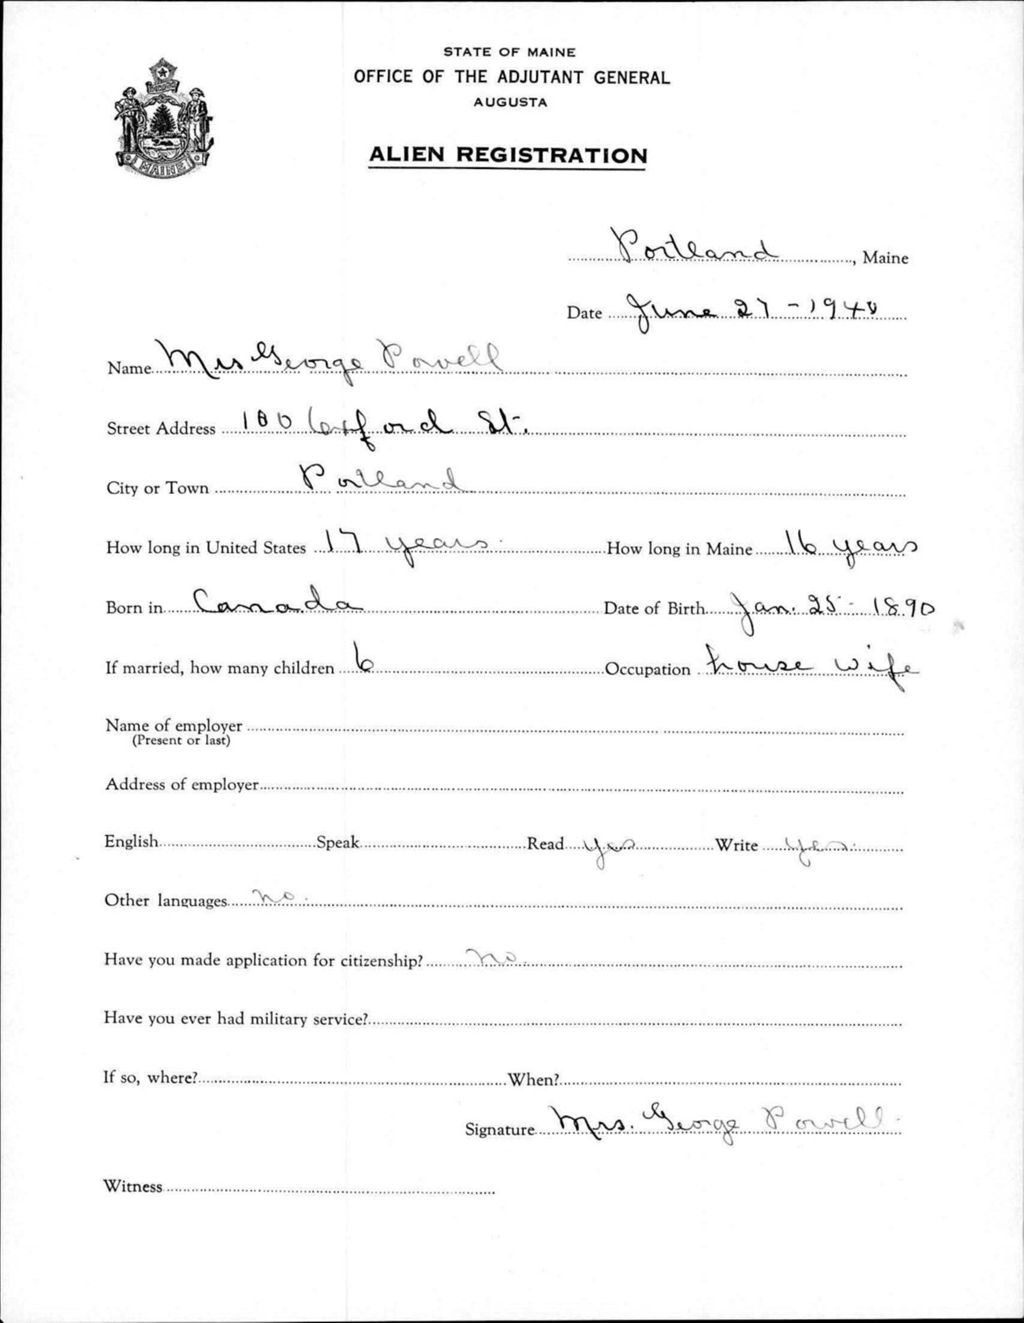 STATE OF MAINE
OFFICE OF THE ADJUTANT GENERAL
AUGUSTA
ALIEN REGISTRATION
MAINE
Portland, Maine
Date June 27 - 1940
Name Mrs George Powell
Street Address 180 Oxford St.
City or Town Portland
How long in United States 17 years. How long in Maine 16 years
Born in Canada Date of Birth Jan. 25 - 1890
If married, how many children 6 Occupation house wife
Name of employer
(Present or last)
Address of employer
English Speak Read yes Write yes.
Other languages no.
Have you made application for citizenship? no.
Have you ever had military service?
If so, where? When?
Signature Mrs. George Powell.
Witness